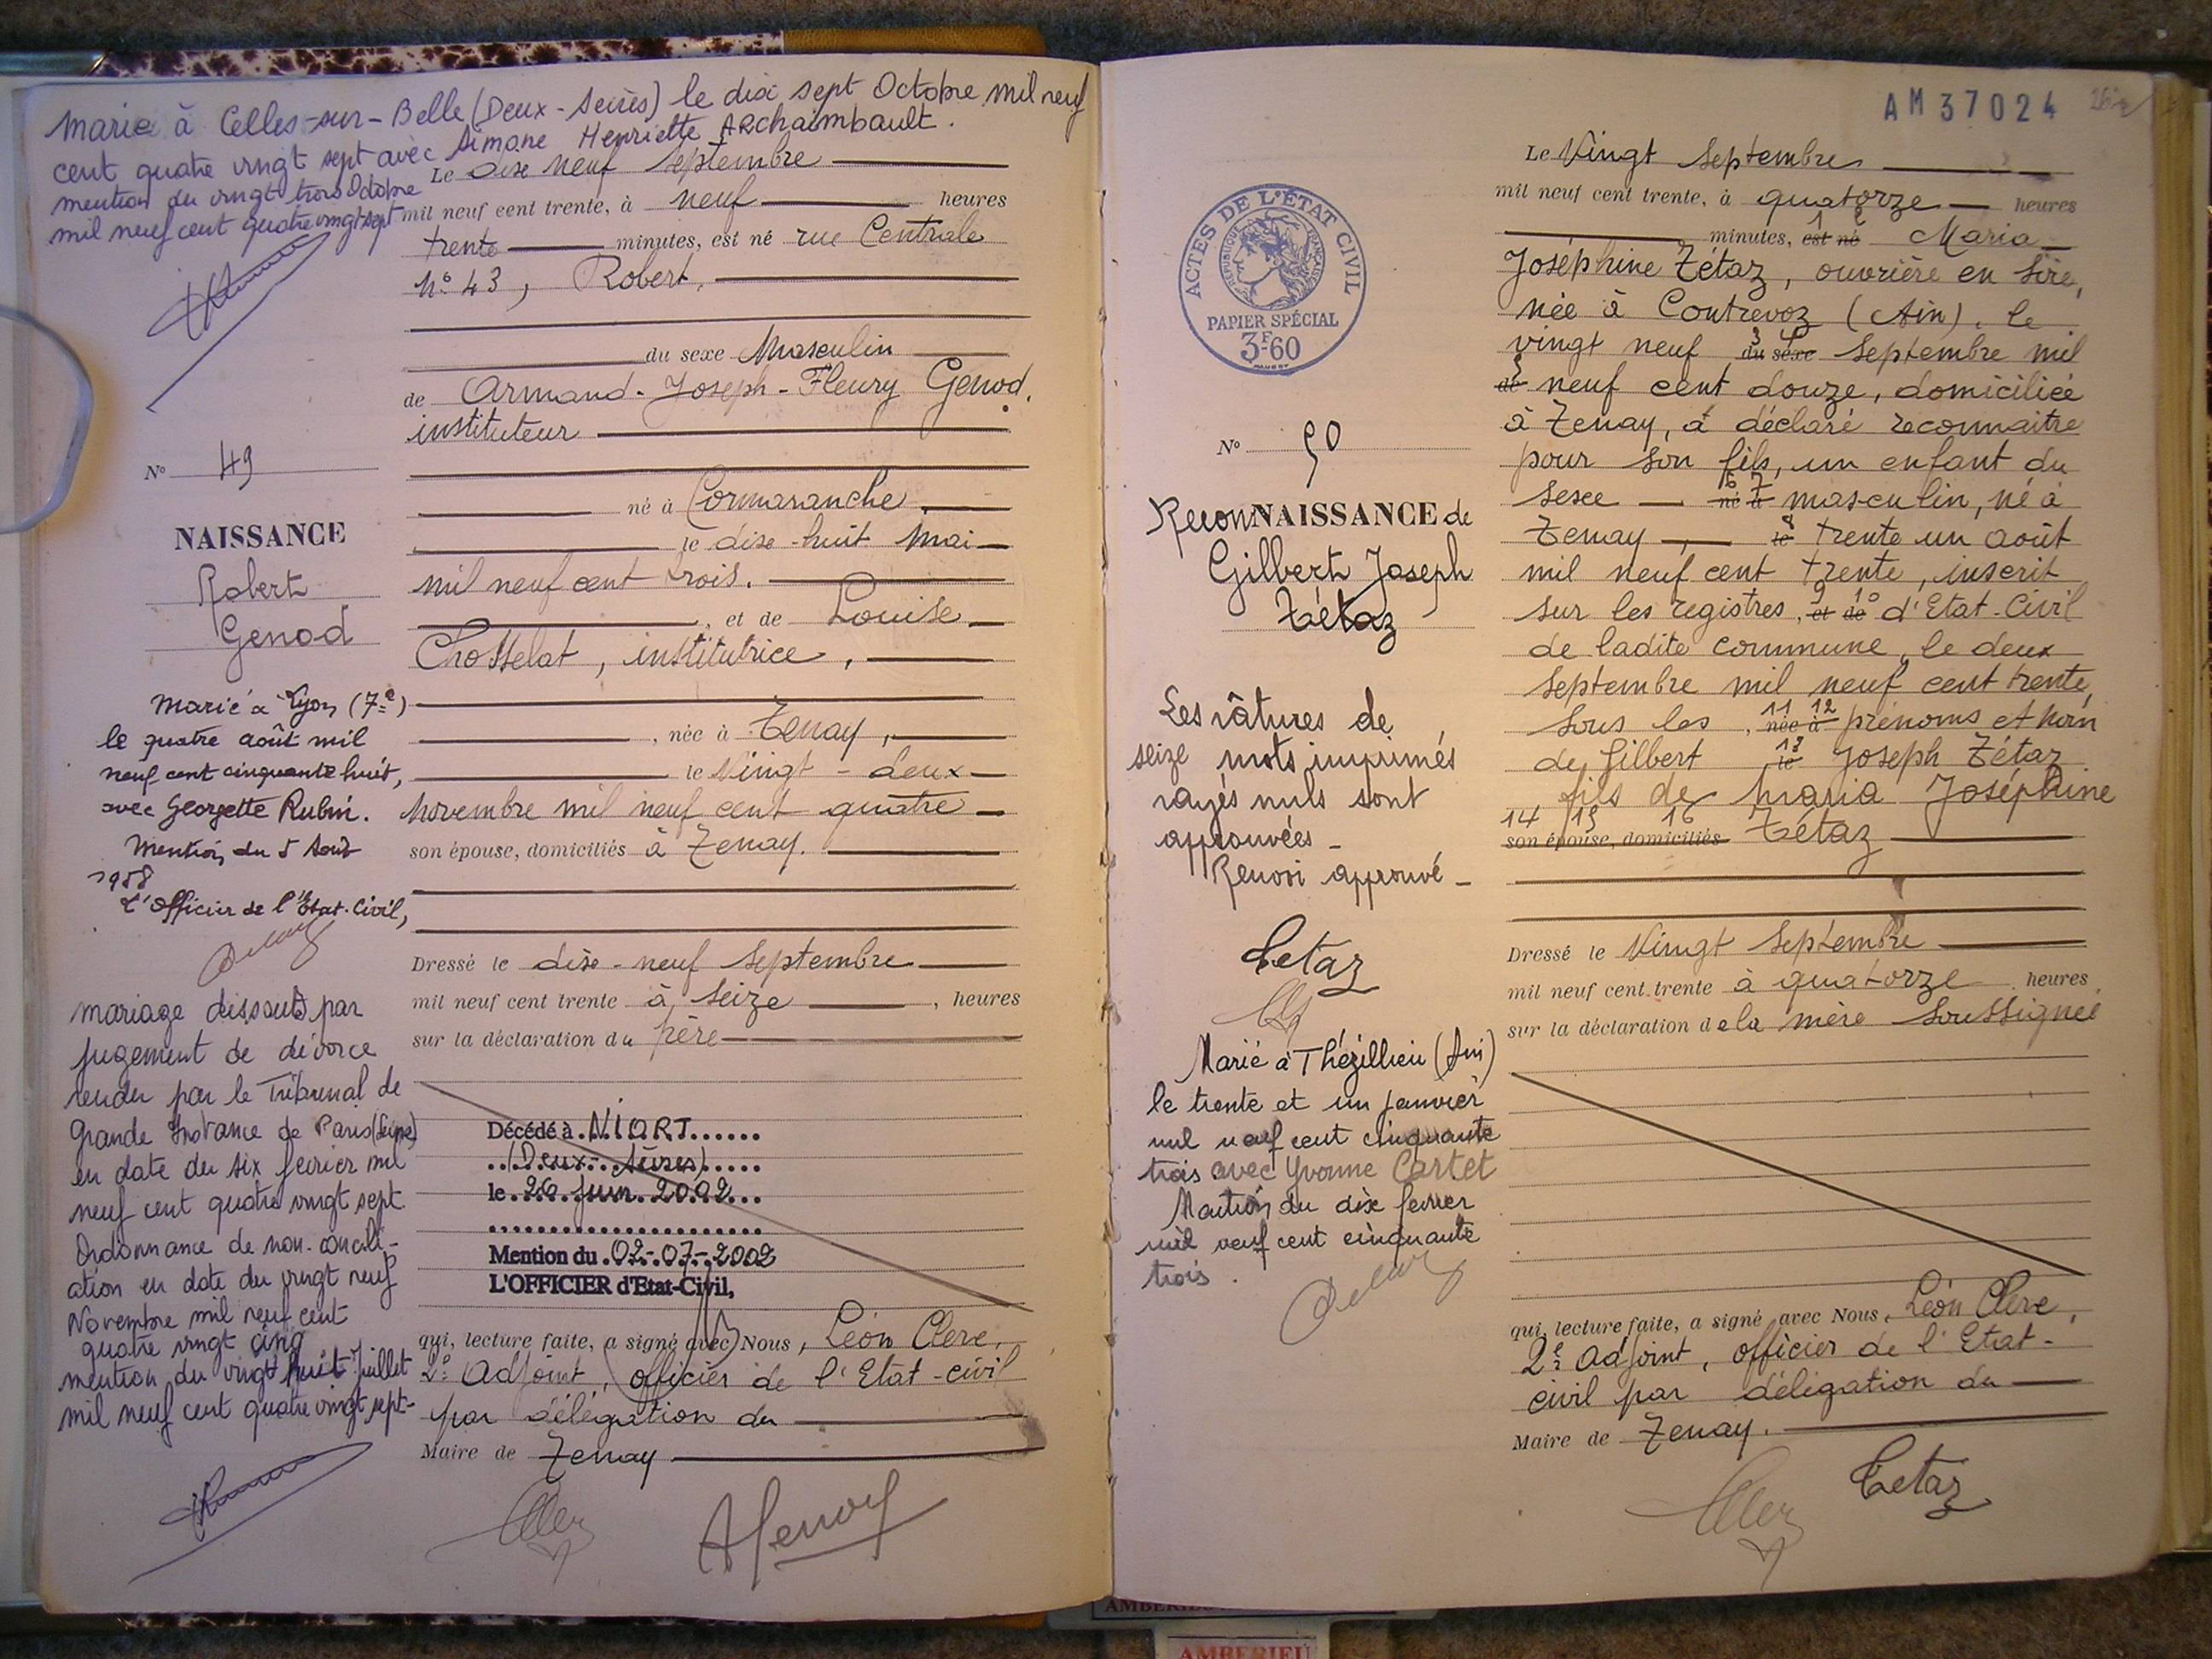 Marié à Celles-sur-Belle (Deux-Sèvres) le dix sept Octobre mil neuf
cent quatre vingt sept avec Simone Henriette ARchaimbault.
mention du vingt trois Octobre
mil neuf cent quatre vingt sept
Le dix neuf septembre
mil neuf cent trente, à neuf heures
trente minutes, est né rue Centrale
N° 43, Robert,
du sexe Masculin
de Armand-Joseph-Fleury Genod,
instituteur
né à Cormaranche,
le dix-huit Mai
mil neuf cent trois.
, et de Louise
Chosselat, institutrice,
, née à Tenay,
le Vingt-deux
Novembre mil neuf cent quatre
son épouse, domiciliés à Tenay.
Dressé le dix-neuf Septembre
mil neuf cent trente à seize, heures
sur la déclaration du père
Décédé à NIORT
(Deux-Sèvres)
le 26 juin 2002
Mention du 02-07-2002
L'OFFICIER d'Etat-Civil,
qui, lecture faite, a signé avec Nous, Léon Clerc,
2e Adjoint, officier de l'Etat-civil
par délégation du
Maire de Tenay
AGenod
N° 49
NAISSANCE
Robert
Genod
Marié à Lyon (7e)
le quatre août mil
neuf cent cinquante huit,
avec Georgette Rubin.
Mention du 5 Août
1958
L'Officier de l'Etat-Civil,
mariage dissous par
jugement de divorce
rendu par le Tribunal de
Grande Instance de Paris (Seine)
en date du six février mil
neuf cent quatre vingt sept
Ordonnance de non-concili-
ation en date du vingt neuf
Novembre mil neuf cent
quatre vingt cinq
mention du vingt huit Juillet
mil neuf cent quatre vingt sept-
AM37024
ACTES DE L'ÉTAT CIVIL
RÉPUBLIQUE FRANÇAISE
PAPIER SPÉCIAL
3F-60
N° 50
ReconNAISSANCE de
Gilbert Joseph
Tétaz
Les râtures de
seize mots imprimés
rayés nuls sont
approuvées-
Renvoi approuvé-
Tetaz
Marié à Thézillieu (Ain)
le trente et un janvier
mil neuf cent cinquante
trois avec Yvonne Cartet
Mention du dix fevrier
mil neuf cent cinquante
trois.
Le Vingt Septembre
mil neuf cent trente, à quatorze heures
minutes, 1 est 2 né Maria
Joséphine Tétaz, ouvrière en soie,
née à Contrevoz (Ain), le
vingt neuf 3 du 4 sexe Septembre mil
5 de neuf cent douze, domiciliée
à Tenay, a déclaré reconnaitre
pour son fils, un enfant du
sexe 6 né 7 à masculin, né à
Tenay, 8 le trente un août
mil neuf cent trente, inscrit
sur les registres, 9 et 10 de d'Etat-Civil
de ladite commune, le deux
Septembre mil neuf cent trente,
sous les, 11 née 12 à prénoms et nom
de Gilbert 13 le Joseph Tétaz
fils de Maria Joséphine
14 15 16
son épouse, domiciliés Tétaz
Dressé le Vingt Septembre
mil neuf cent trente à quatorze heures
sur la déclaration de la mère soussignée
qui, lecture faite, a signé avec Nous, Léon Clerc,
2e Adjoint, officier de l'Etat-
civil par délégation du
Maire de Tenay.
Tetaz
AMBERIEU